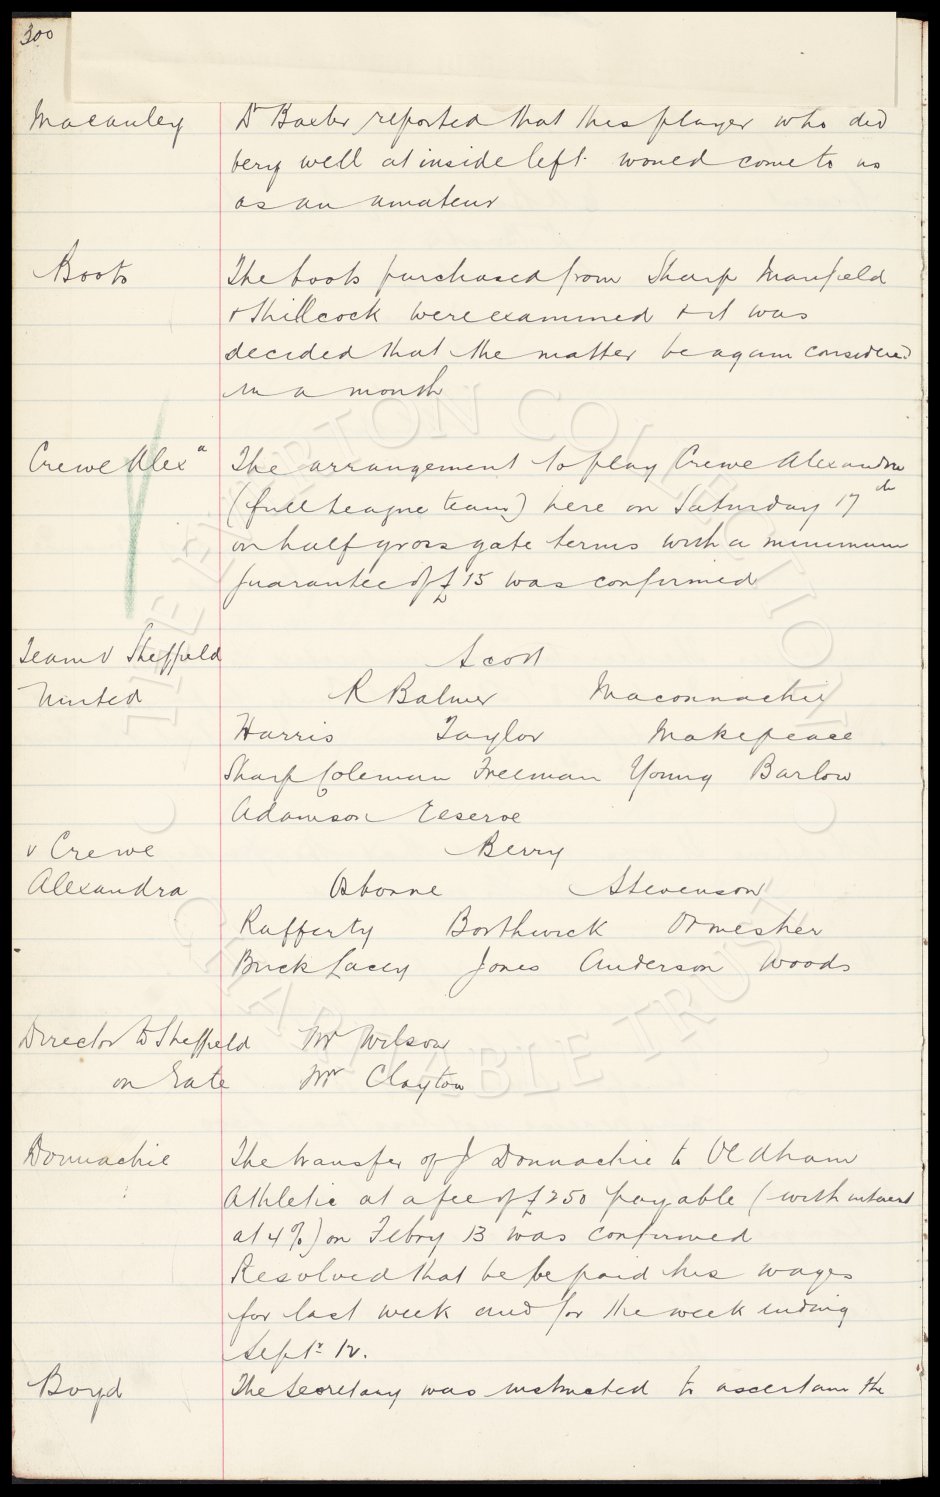 300
Macauley Dr Baxter reported that this player who did
very well at inside left would come to us
as an amateur
Boots The boots purchased from Sharp Manfield
& Shillcock were examined & it was
decided that the matter be again considered
in a month
Crewe Alexa The arrangement to play Crewe Alexandra
(full league team) here on Saturday 17th
on half gross gate terms with a minimum
guarantee of £15 was confirmed
Team v Sheffield Scott
United R Balmer Maconnachie
Harris Taylor Makepeace
Sharp Coleman Freeman Young Barlow
Adamson reserve
v Crewe Berry
Alexandra Osborne Stevenson
Rafferty Borthwick Ormesher
Buck Lacey Jones Anderson Woods
Director to Sheffield Mr Wilson
on Gate Mr Clayton
Donnachie The transfer of J Donnachie to Oldham
Athletic at a fee of £250 payable (with interest
at 4%) on Febry 13 was confirmed
Resolved that he be paid his wages
for last week and for the week ending
Septr 12.
Boyd The Secretary was instructed to ascertain the
THE EVERTON COLLECTION
CHARITABLE TRUST